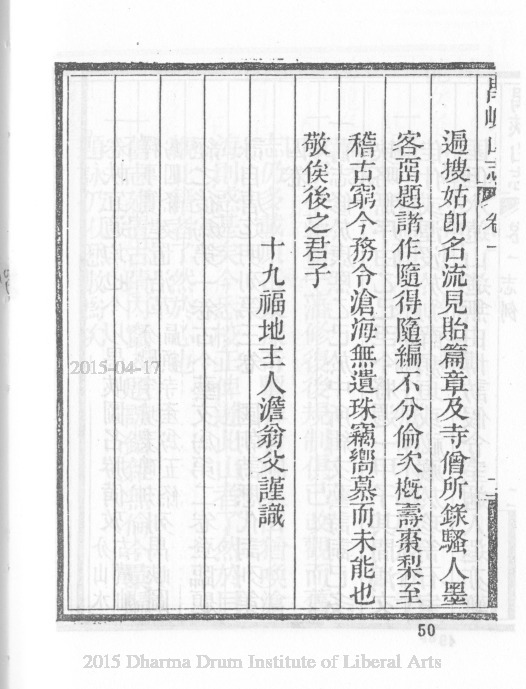 遍搜姑即名流見貽篇章及寺僧所錄騷人墨
客畱題諸作隨得隨編不分倫次概壽棗梨至
稽古窮今務令滄海無遺珠竊嚮慕而未能也
敬俟後之君子
十九福地主人澹翁父謹識
2015-04-17
50
2015 Dharma Drum Institute of Liberal Arts